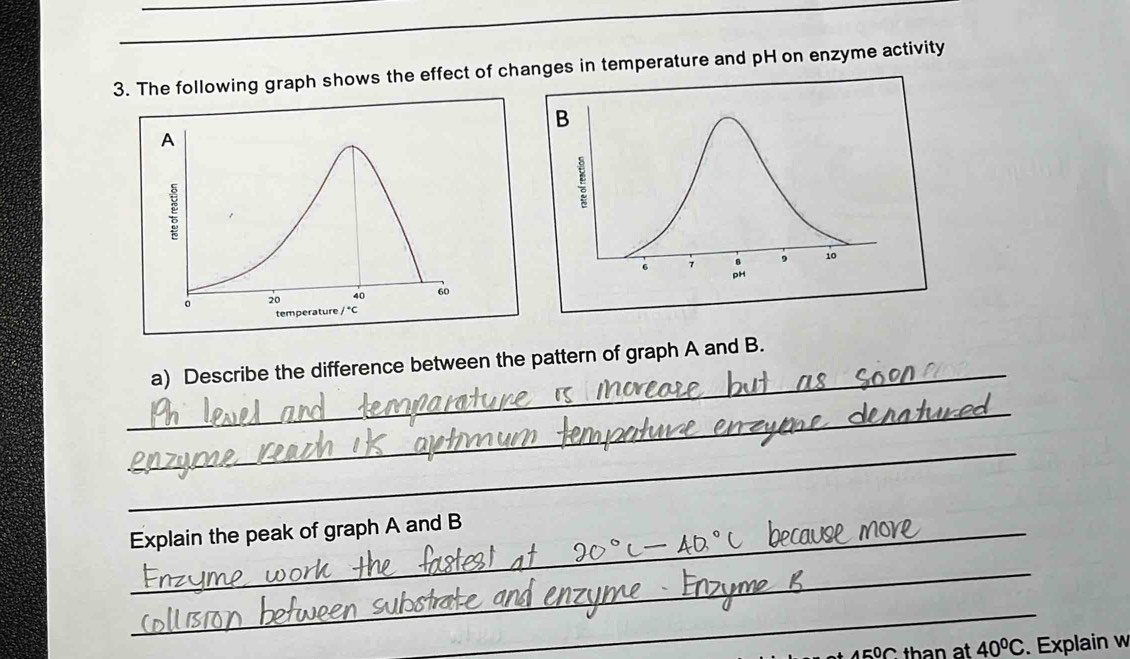 3. The following graph shows the effect of changes in temperature and pH on enzyme activity
A
rate of reaction
0 20 40 60
temperature / °C
B
rate of reaction
6 7 8 9 10
pH
a) Describe the difference between the pattern of graph A and B.
Ph level and temparature is increase but as soon
enzyme reach its aptimum tempature enzyme denatured
Explain the peak of graph A and B
Enzyme work the fastest at 20°C - 40°C because more
collision between substrate and enzyme. Enzyme B
45ºC than at 40ºC. Explain w